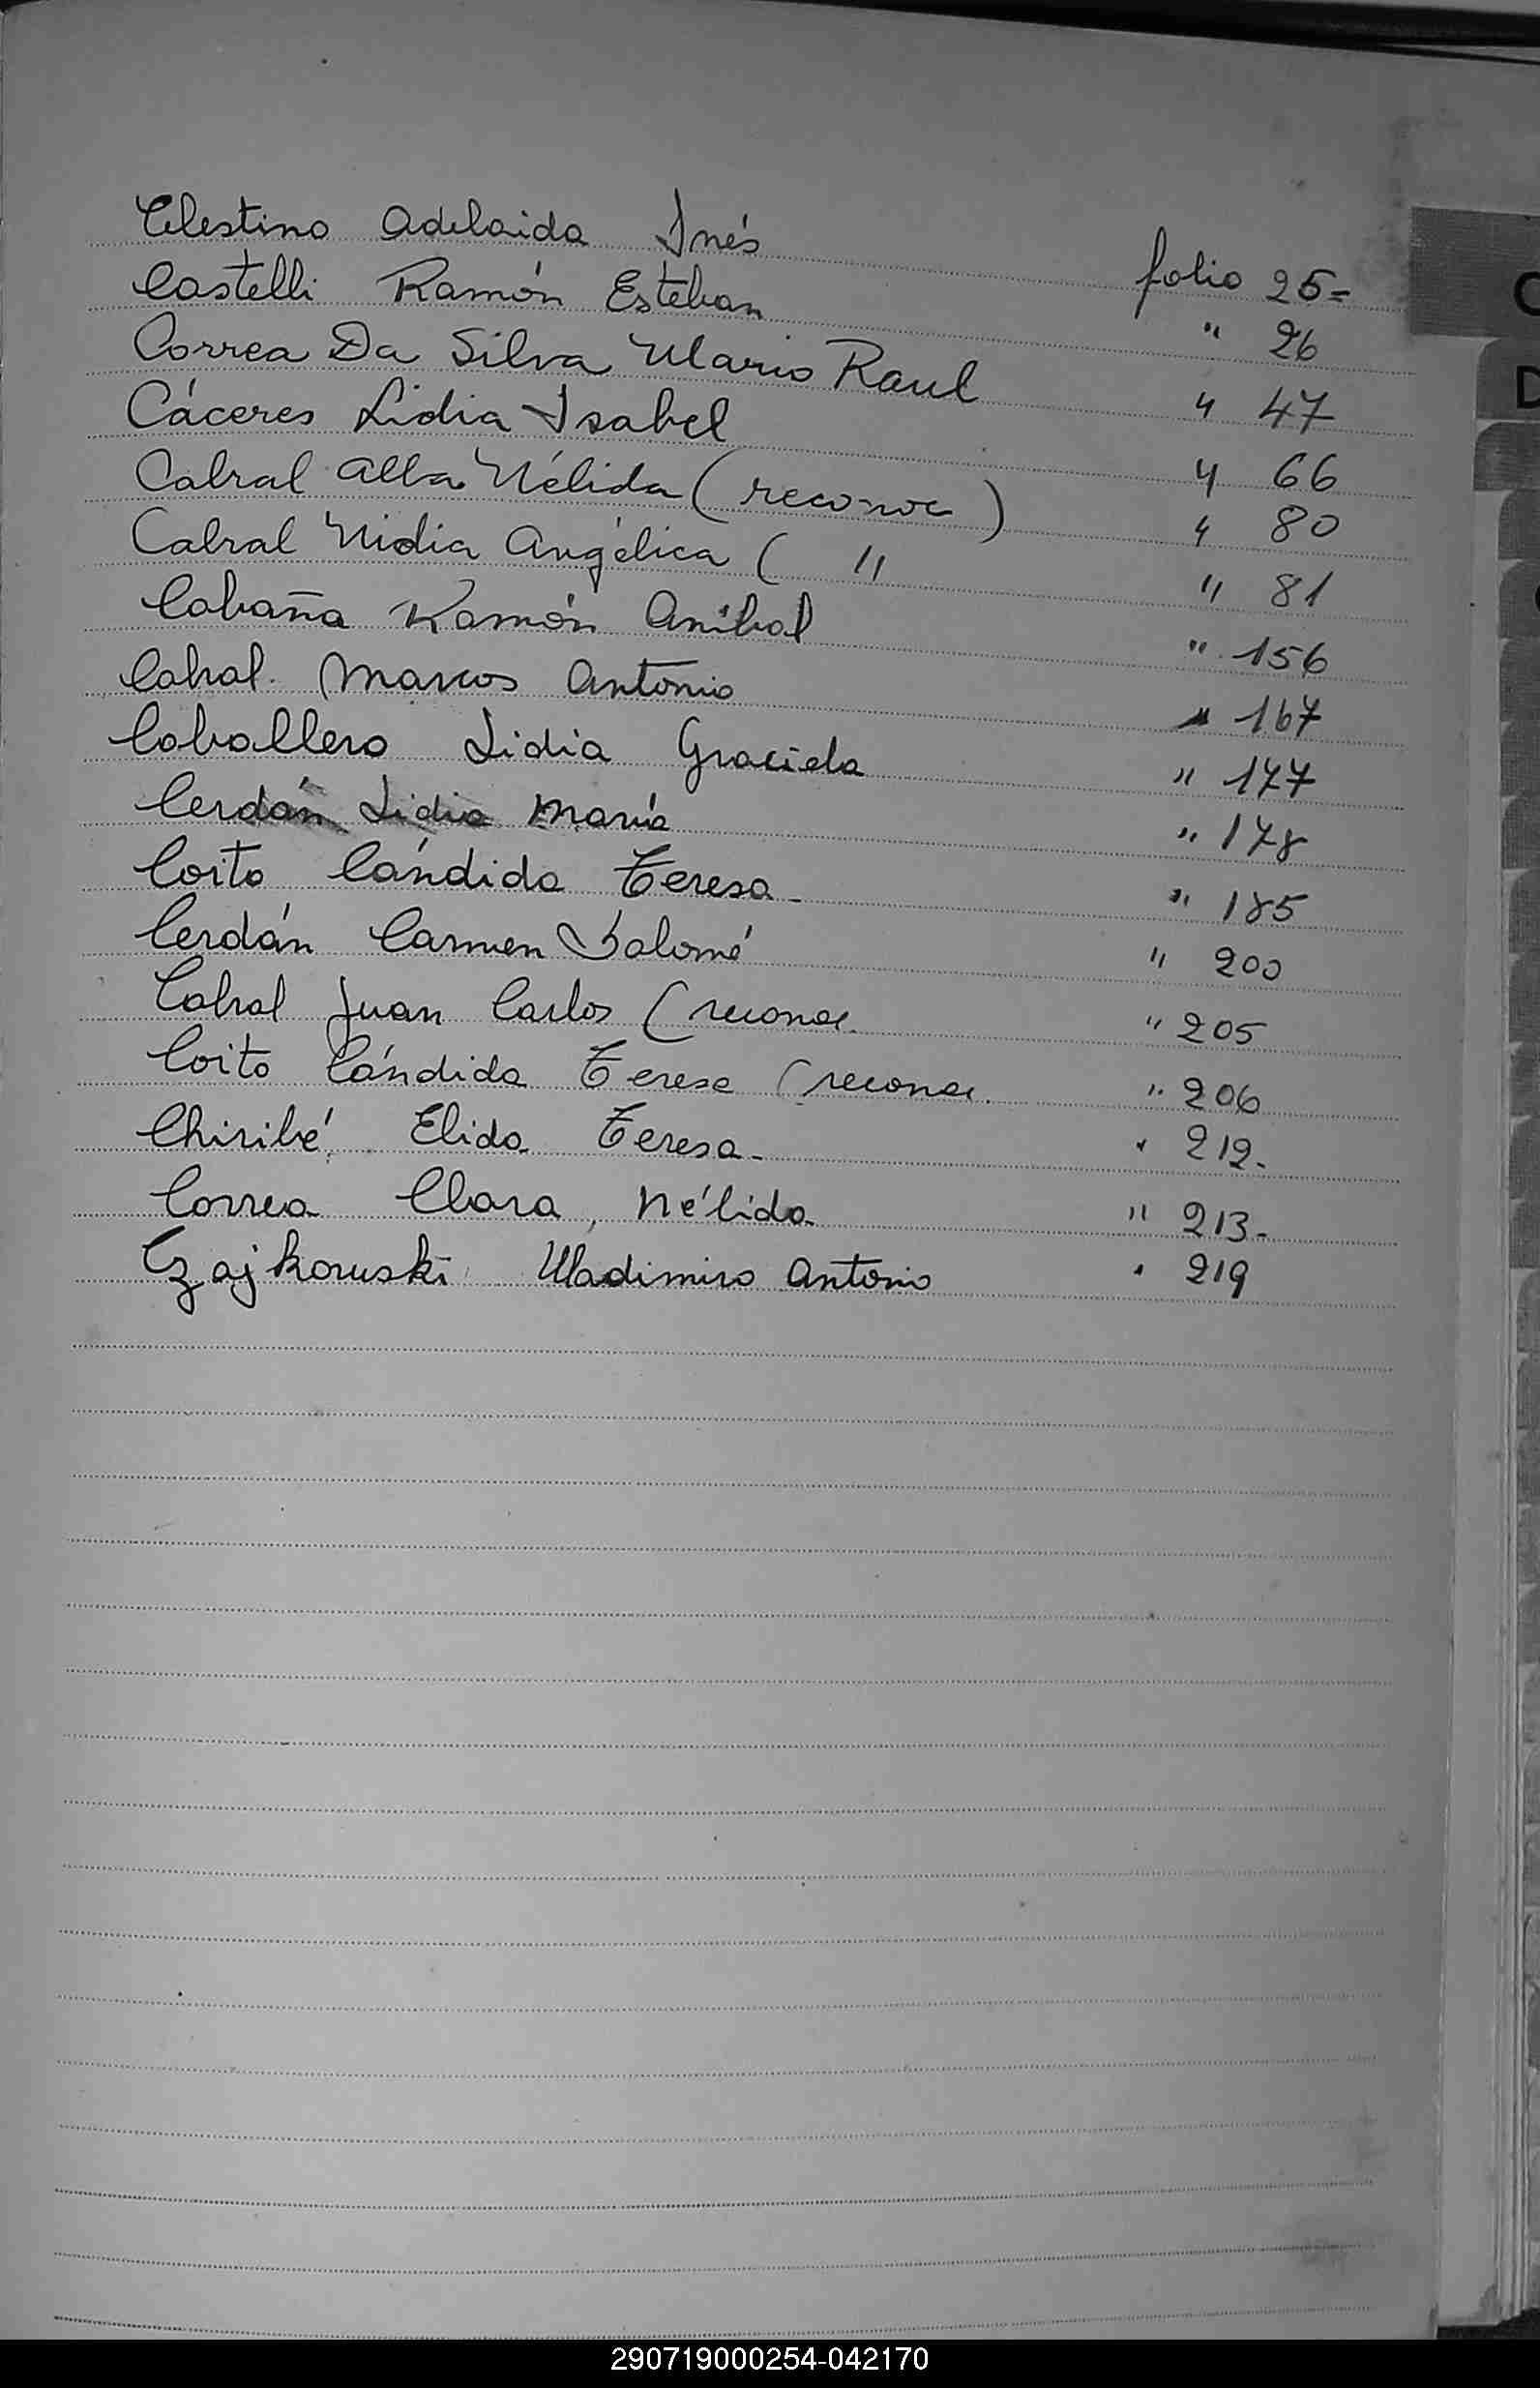 Celestino Adelaida Inés folio 25=
Castelli Ramón Esteban " 26
Correa Da Silva Mario Raul " 47
Cáceres Lidia Isabel " 66
Cabral Alba Nélida (reconoc) " 80
Cabral Nidia Angélica ( " " 81
Cabaña Ramón Aníbal " 156
Cabral. Marcos Antonio " 167
Caballero Lidia Graciela " 177
Cerdán Lidia María " 178
Coito Cándida Teresa - " 185
Cerdán Carmen Salomé " 200
Cabral Juan Carlos (reconoc. " 205
Coito Cándida Teresa (reconoc. " 206
Chiribé Elida Teresa - " 212.
Correa Clara, Nélida " 213-
Czajkowski Wladimiro Antonio " 219
C
D
290719000254-042170